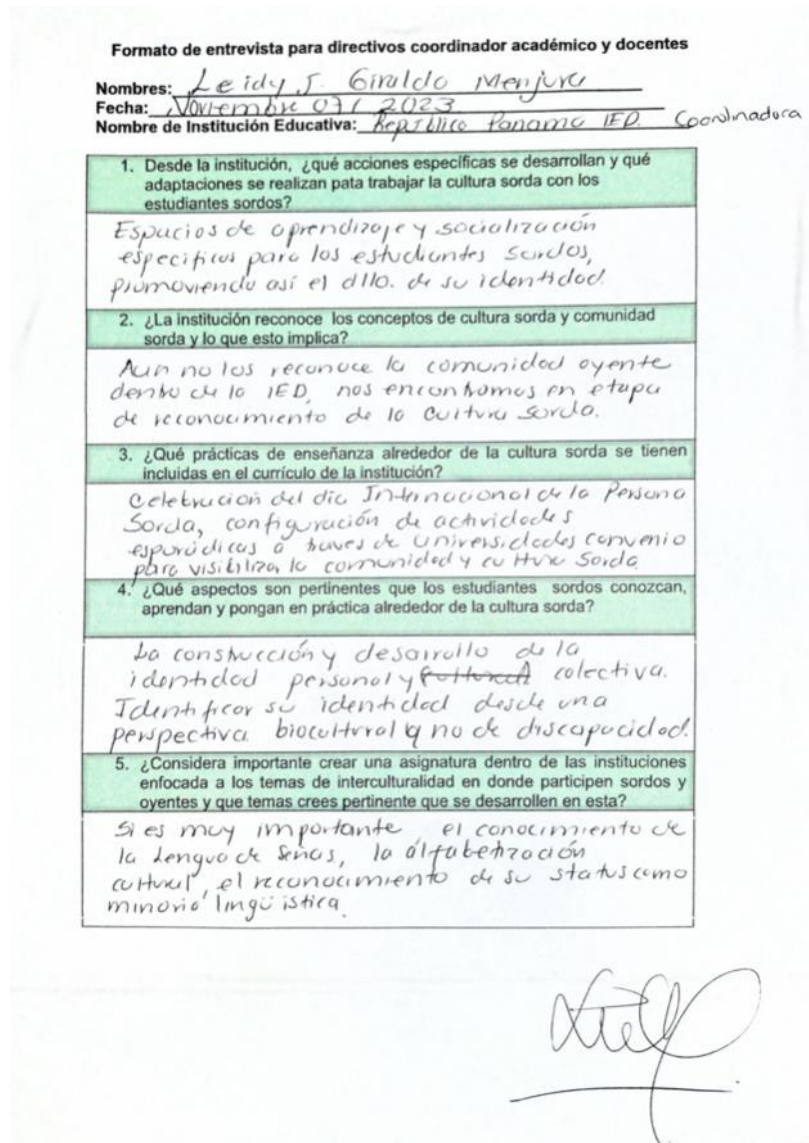 Formato de entrevista para directivos coordinador académico y docentes
Nombres: Leidy J. Giraldo Menjura
Fecha: Noviembre 07/2023
Nombre de Institución Educativa: República Panamá IED. Coordinadora
1. Desde la institución, ¿qué acciones específicas se desarrollan y qué
adaptaciones se realizan pata trabajar la cultura sorda con los
estudiantes sordos?
Espacios de aprendizaje y socialización
específicos para los estudiantes Sordos,
promoviendo así el dllo. de su identidad.
2. ¿La institución reconoce los conceptos de cultura sorda y comunidad
sorda y lo que esto implica?
Aun no los reconoce la comunidad oyente
dentro de la IED, nos encontramos en etapa
de reconocimiento de la Cultura Sorda.
3. ¿Qué prácticas de enseñanza alrededor de la cultura sorda se tienen
incluidas en el currículo de la institución?
Celebración del día Internacional de la Persona
Sorda, configuración de actividades
esporádicas a traves de Universidades convenio
para visibilizar la comunidad y cultura Sorda
4. ¿Qué aspectos son pertinentes que los estudiantes sordos conozcan,
aprendan y pongan en práctica alrededor de la cultura sorda?
La construcción y desarrollo de la
identidad personal y colectiva.
Identificar su identidad desde una
perspectiva biocultural y no de discapacidad.
5. ¿Considera importante crear una asignatura dentro de las instituciones
enfocada a los temas de interculturalidad en donde participen sordos y
oyentes y que temas crees pertinente que se desarrollen en esta?
Si es muy importante, el conocimiento de
la Lengua de Señas, la alfabetización
cultural, el reconocimiento de su status como
minoria lingüistica.